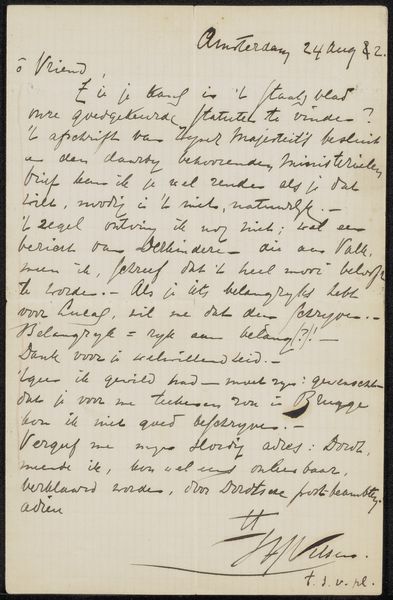 Amsterdam 24 Aug 82.
ô Vriend,
Zie je kans in 't staatsblad
onze goedgekeurde statuten te vinden?
't afschrift van Zijner Majesteit's besluit
en den daarby behoorenden, ministerieelen
brief kan ik je wel zenden als je dat
wilt, noodig is 't niet, natuurlyk. —
't zegel ontving ik nog niet; wel een
bericht van Derkinderen die aan Valk,
meen ik, schreef dat 't heel mooi beloofde
te worden. — Als je iets belangryks hebt
voor Lucas, wil me dat dan schryven. —
Belangryk = ryk aan belang?! —
Dank voor je welwillendheid. —
ik gewild had — moet zyn: gewenscht
dat je voor me teekenen zou in Brugge
kon ik niet goed beschryven. —
Vergeef me myn slordig adres: Dordt,
meende ik, kon wel eens onleesbaar,
verklaard worden, door Dordtsche postbeambten.
adieu
tt
t. s. v. pl.